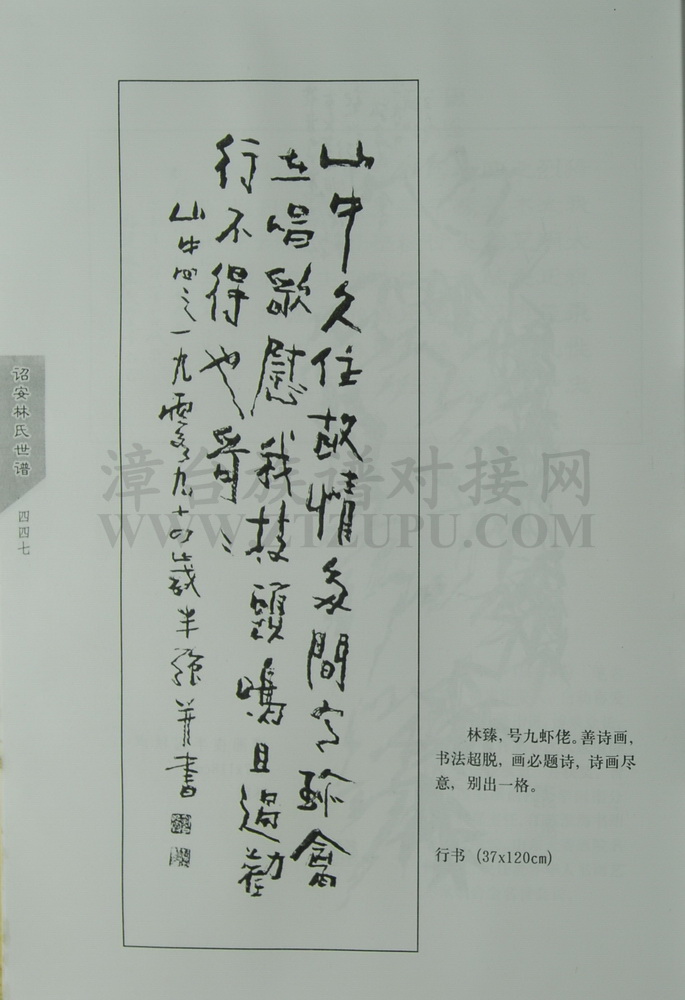 山中久住故情多間有珍禽
在唱歌慰我枝頭鳴且過勸
行不得也哥〻
山中四之一九零九十四歲半強并書
诏安林氏世谱
四四七
林臻，号九虾佬。善诗画，
书法超脱，画必题诗，诗画尽
意，别出一格。
行书 (37x120cm)
漳台族谱对接网
WWW.ZTZUPU.COM